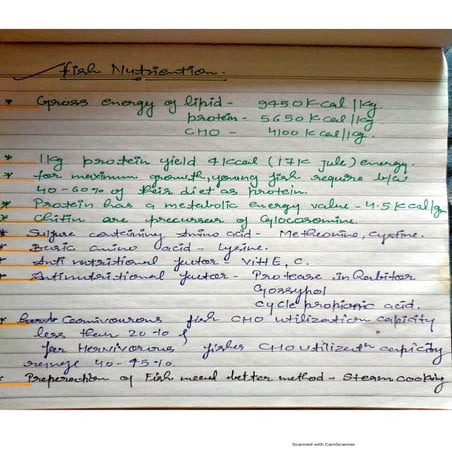 Fish Nutriention.
* Gross energy of lipid - 9450 Kcal/kg.
protein - 5650 Kcal/kg.
CHO - 4100 Kcal/kg.
* 1 kg protein yield 4 kcal (17 K Jule) energy.
* for maximum growth, young fish require b/w
40-60% of their diet as protein.
* Protein has a metabolic energy value - 4.5 Kcal/g
* Chitin are precurser of Glocosomine.
* Sulfure containing Amino acid - Metheonine, Cystine.
* Basic amino acid - Lysine.
* Anti nutritional factor - Vit E, C.
* Antinutritional factor - Protease inhibitor
Gossypol
Cyclo propionic acid.
* Carnivourous fish CHO utilization capicity
less than 20%
for Hervivorous fishes CHO utilizatn capicity
range 40-45%.
* Preperation of Fish meal better method - Steam cooking
Scanned with CamScanner